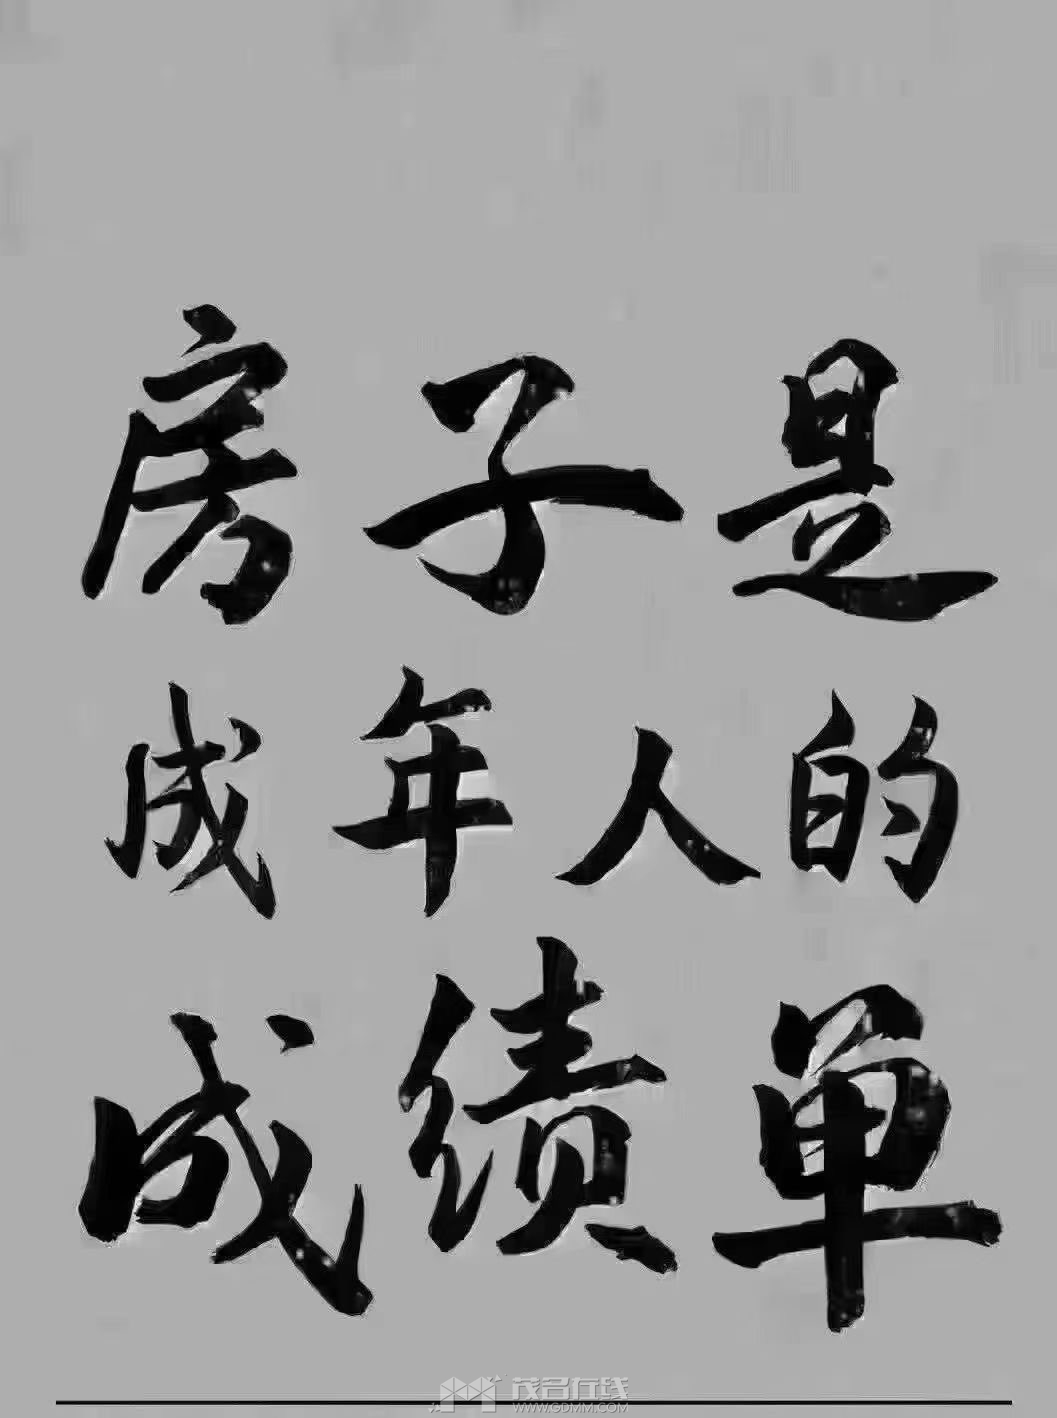 房子是
成年人的
成绩单
茂名在线
WWW.GDMM.COM